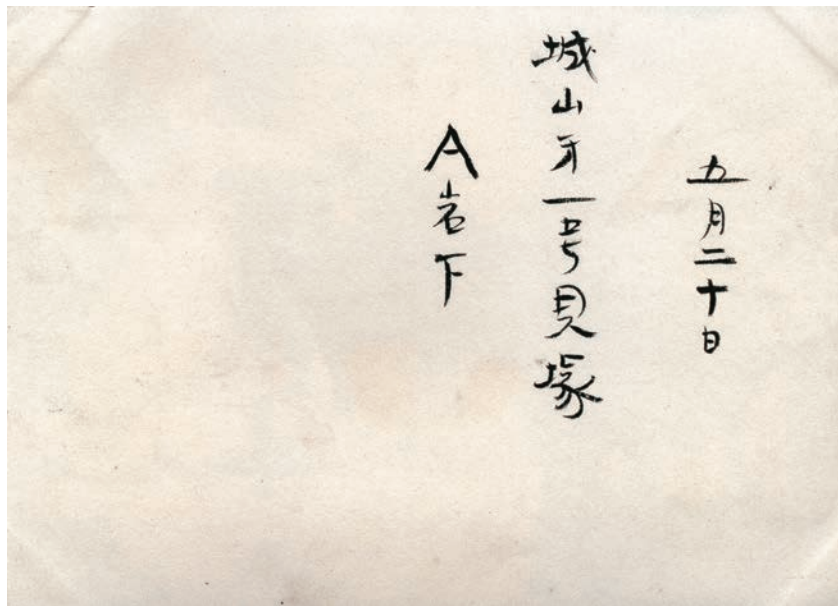 五月二十日
城山才一号貝塚
A岩下